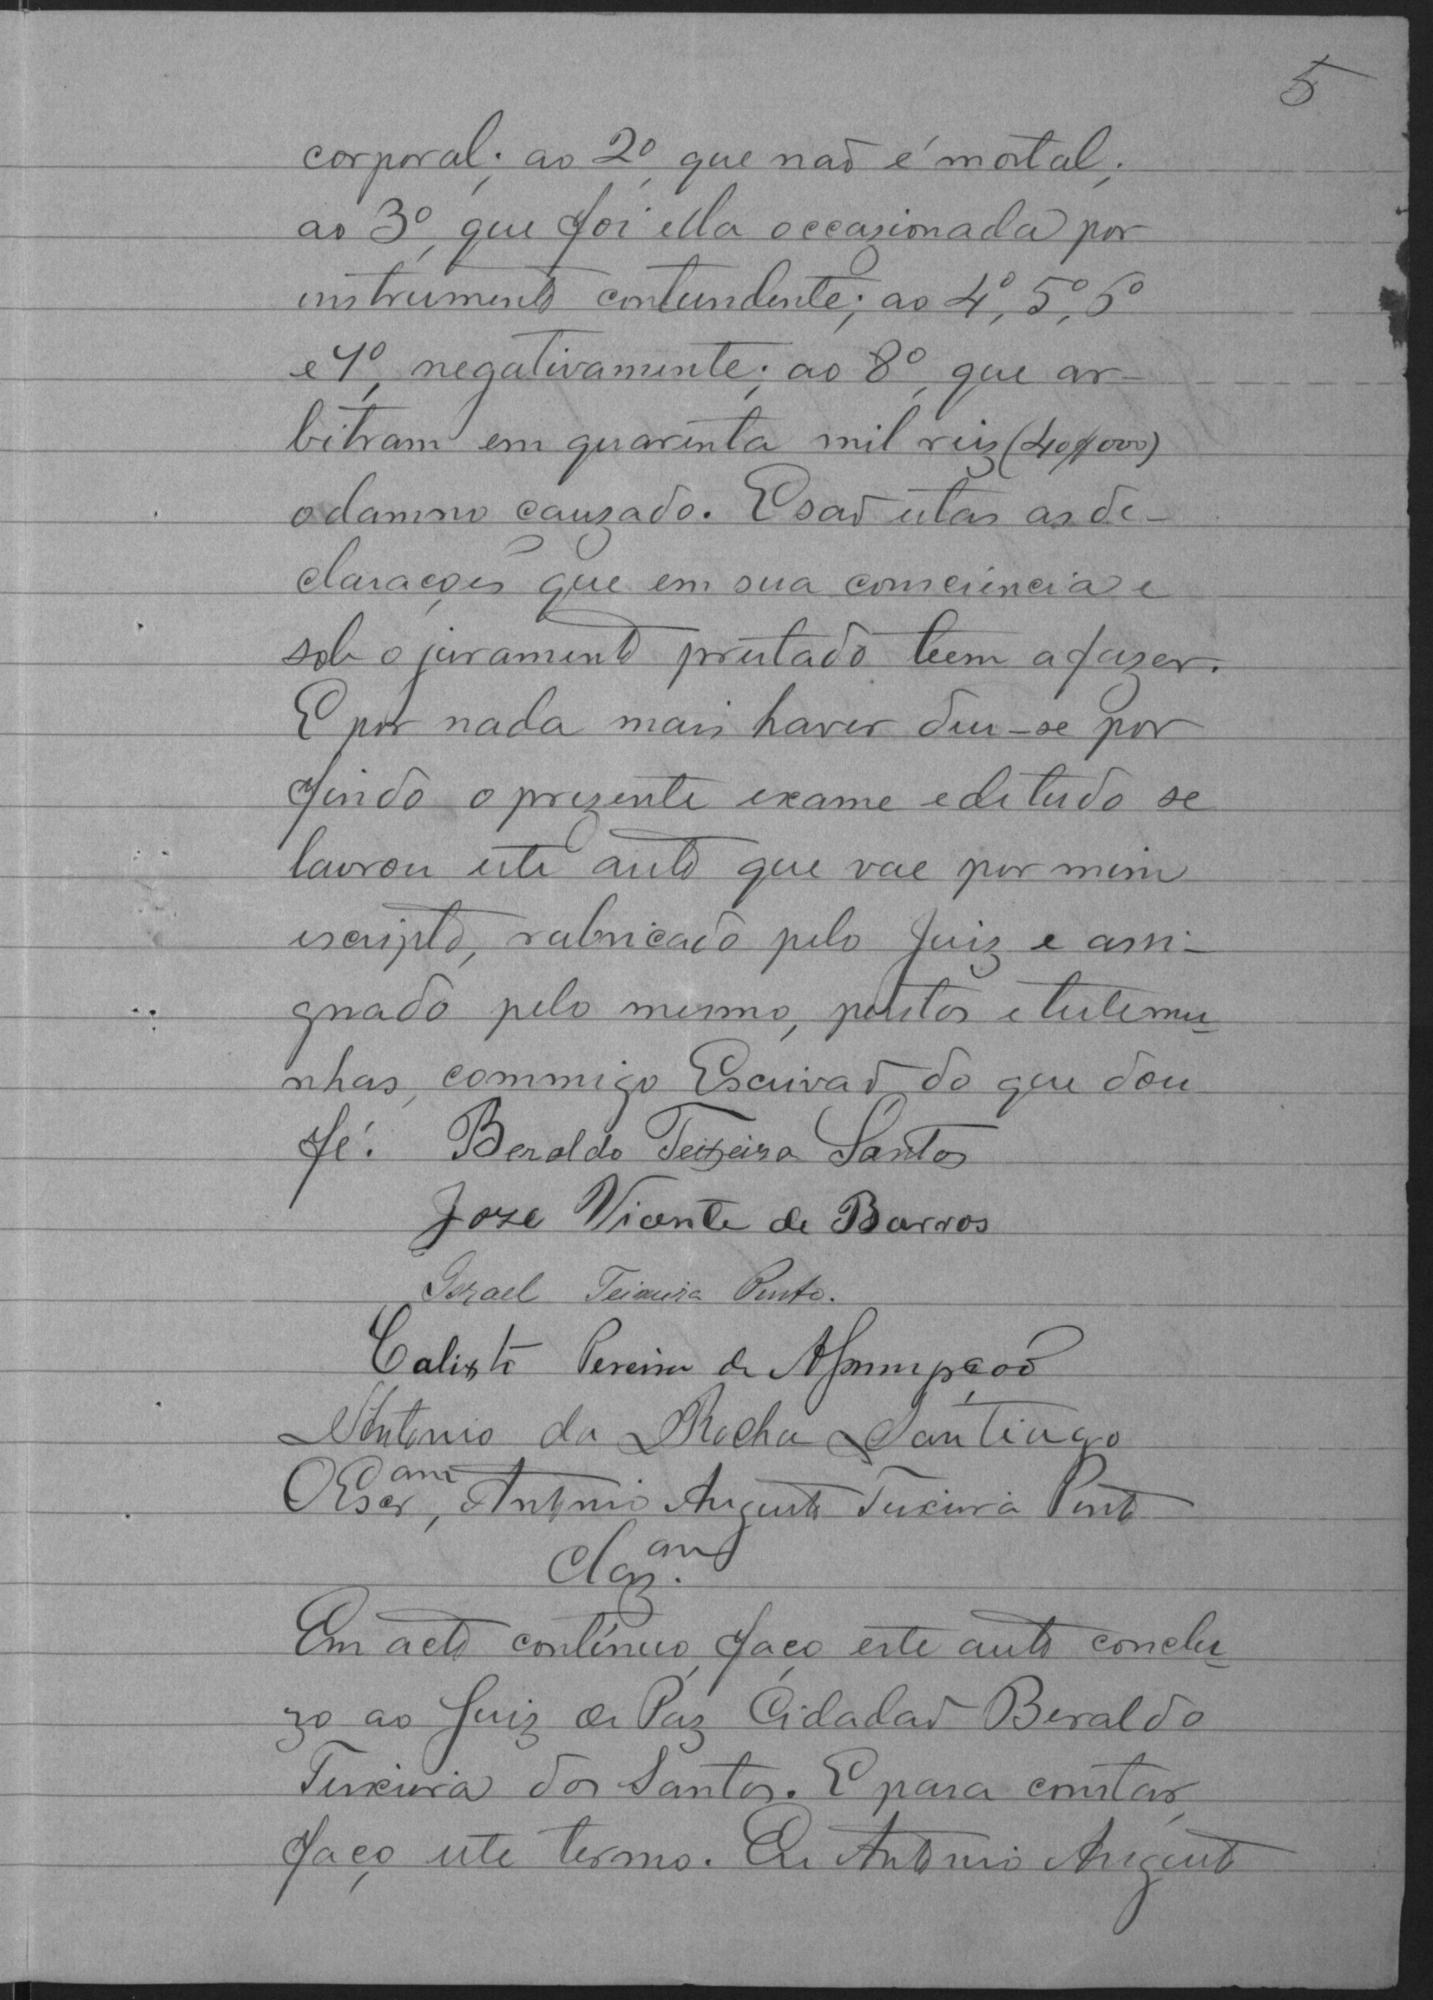 5
corporal; ao 2º, que naõ é mortal;
ao 3º, que foi ella occazionada por
instrumento contundente; ao 4º, 5º, 6º
e 7º, negativamente; ao 8º, que ar-
bitram em quarenta mil reis (40$000)
o damno cauzado. E saõ estas as de-
claraçoes que em sua consciencia e
sob o juramento prestado teem a fazer.
E por nada mais haver deu-se por
findo o prezente exame e de tudo se
lavrou este auto que vae por mim
escripto, rubricado pelo Juiz e assi-
gnado pelo mesmo, peritos e testemu-
nhas, commigo Escrivaõ, do que dou
fé. Beraldo Teixeira Santos
Joze Vicente de Barros
Israel Teixeira Pinto.
Calixto Pereira de Assumpçaõ
Antonio da Rocha Santiago
O Escram, Antonio Augusto Teixeira Pinto
Clzam.
Em acto continuo, faço este auto conclu-
zo ao Juiz de Paz Cidadaõ Beraldo
Teixeira dos Santos. E para constar,
faço este termo. Eu Antonio Augusto